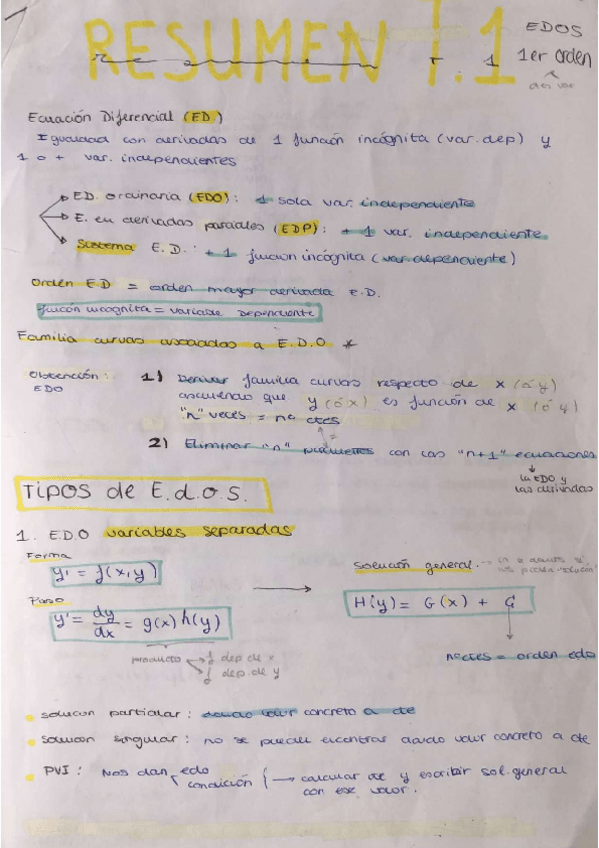 RESUMEN T.1
Resumen T. 1
EDOS
1er orden
Ecuación Diferencial (ED.)
Igualdad con derivadas de 1 función incógnita (var. dep) y
1 o + var. independientes
ED. ordinaria (EDO): 1 sola var. independiente
E. en derivadas parciales (EDP): + 1 var. independiente
Sistema E.D.: + 1 funcion incógnita (var. dependiente)
Orden ED = orden mayor derivada E.D.
función incognita = variable Dependiente
Familia curvas asociadas a E.D.O *
Obtención:
EDO
1) Derivar familia curvas respecto de x (ó y)
asumiendo que y (ó x) es función de x (ó y)
"n" veces = nº ctes
2) Eliminar "n" parámetros con las "n+1" ecuaciones
la EDO y
las derivadas
TIPOS de E.d.O.S.
1. E.D.O variables separadas
Forma
y' = f(x,y)
Solución general
y' = dy/dx = g(x) h(y)
H(y) = G(x) + C
producto
f dep de x
f dep de y
nº ctes = orden edo
solucion particular: dando valor concreto a cte
solucion singular: no se puede encontrar dando valor concreto a cte
PVI: Nos dan edo
condición
calcular cte y escribir sol. general
con ese valor.